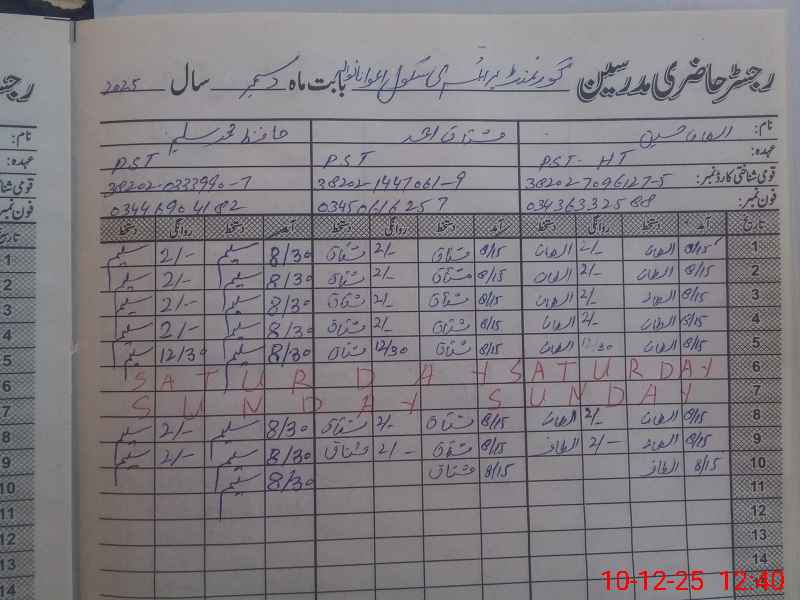 رجسٹر حاضری مدرسین گورنمنٹ پرائمری سکول بابت ماہ دسمبر سال 2025
نام: الطاف حسین مشتاق احمد حافظ محمد سلیم
عہدہ: PST-HT PST PST
قومی شناختی کارڈ نمبر: 382027096127-5 38202-1447061-9 38202-0333990-7
فون نمبر: 03436332588 03450616257 03446904182
تاریخ آمد دستخط روانگی دستخط آمد دستخط روانگی دستخط آمد دستخط روانگی دستخط
1 8/15 الطاف 2/- الطاف 8/15 مشتاق 2/- مشتاق 8/30 سلیم 2/- سلیم
2 8/15 الطاف 2/- الطاف 8/15 مشتاق 2/- مشتاق 8/30 سلیم 2/- سلیم
3 8/15 الطاف 2/- الطاف 8/15 مشتاق 2/- مشتاق 8/30 سلیم 2/- سلیم
4 8/15 الطاف 2/- الطاف 8/15 مشتاق 2/- مشتاق 8/30 سلیم 2/- سلیم
5 8/15 الطاف 12/30 الطاف 8/15 مشتاق 12/30 مشتاق 8/30 سلیم 12/30 سلیم
6 SATURDAY SATURDAY
7 SUNDAY SUNDAY
8 8/15 الطاف 2/- الطاف 8/15 مشتاق 2/- مشتاق 8/30 سلیم 2/- سلیم
9 8/15 الطاف 2/- الطاف 8/15 مشتاق 2/- مشتاق 8/30 سلیم 2/- سلیم
10 8/15 الطاف 8/15 مشتاق 8/30 سلیم
11
12
13
14
10-12-25 12:40